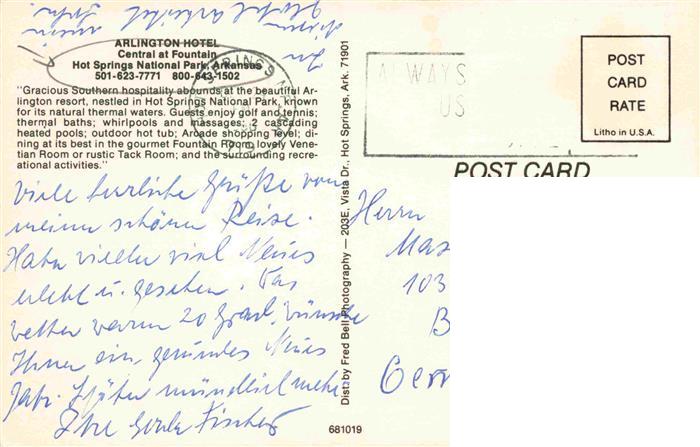 ARLINGTON HOTEL
Central at Fountain
Hot Springs National Park, Arkansas
501-623-7771 800-643-1502
"Gracious Southern hospitality abounds at the beautiful Ar-
lington resort, nestled in Hot Springs National Park, known
for its natural thermal waters. Guests enjoy golf and tennis;
thermal baths; whirlpools and massages; 2 cascading
heated pools; outdoor hot tub; Arcade shopping level; di-
ning at its best in the gourmet Fountain Room, lovely Vene-
tian Room or rustic Tack Room; and the surrounding recre-
ational activities."
Viele herrliche Grüße von
meiner schönen Reise.
Habe viel Neues
erlebt u. gesehen. Das
Wetter warm 20 Grad, wünsche
Ihnen ein gesundes Neues
Jahr. Später mündlich mehr
Ihre Gerda Fischer
In diesem
mein Sohn
Dist. by Fred Bell Photography — 203E, Vista Dr., Hot Springs, Ark. 71901
681019
SPRINGS
ALWAYS
US
POST
CARD
RATE
Litho in U.S.A.
POST CARD
Herrn
Max
103
B
Germ